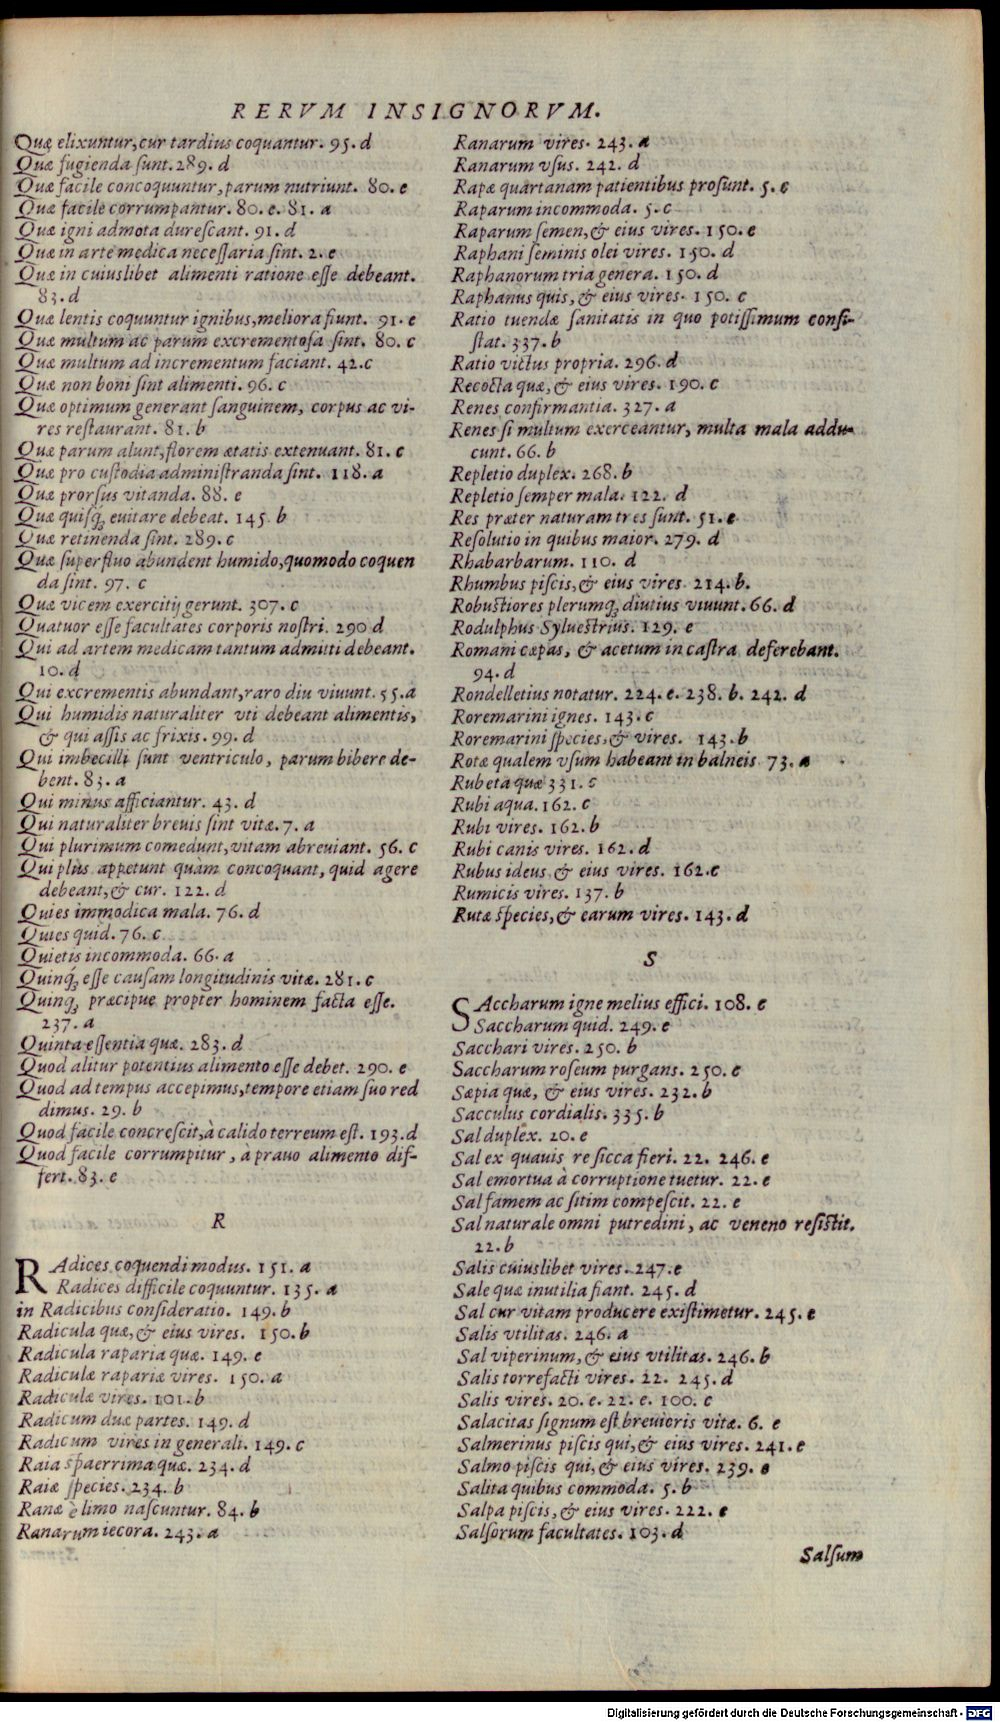 RERVM INSIGNORVM.
Quæ elixuntur, cur tardius coquantur. 95. d
Quæ fugienda ſunt. 289. d
Quæ facile concoquuntur, parum nutriunt. 80. e
Quæ facile corrumpantur. 80. e. 81. a
Quæ igni admota dureſcant. 91. d
Quæ in arte medica neceſſaria ſint. 2. e
Quæ in cuiuslibet alimenti ratione eſſe debeant.
83. d
Quæ lentis coquuntur ignibus, meliora fiunt. 91. e
Quæ multum ac parum excrementoſa ſint. 80. c
Quæ multum ad incrementum faciant. 42. c
Quæ non boni ſint alimenti. 96. c
Quæ optimum generant ſanguinem, corpus ac vi-
res reſtaurant. 81. b
Quæ parum alunt, florem ætatis extenuant. 81. c
Quæ pro cuſtodia adminiſtranda ſint. 118. a
Quæ prorſus vitanda. 88. e
Quæ quiſq; euitare debeat. 145. b
Quæ retinenda ſint. 289. c
Quæ ſuperfluo abundent humido, quomodo coquen
da ſint. 97. c
Quæ vicem exercitij gerunt. 307. c
Quatuor eſſe facultates corporis noſtri. 290 d
Qui ad artem medicam tantum admitti debeant.
10. d
Qui excrementis abundant, raro diu viuunt. 55. a
Qui humidis naturaliter vti debeant alimentis,
& qui aſſis ac frixis. 99. d
Qui imbecilli ſunt ventriculo, parum bibere de-
bent. 83. a
Qui minus afficiantur. 43. d
Qui naturaliter breuis ſint vitæ. 7. a
Qui plurimum comedunt, vitam abreuiant. 56. c
Qui plùs appetunt quàm concoquant, quid agere
debeant, & cur. 122. d
Quies immodica mala. 76. d
Quies quid. 76. c
Quietis incommoda. 66. a
Quinq; eſſe cauſam longitudinis vitæ. 281. c
Quinq; præcipue propter hominem facta eſſe.
237. a
Quinta eſſentia quæ. 283. d
Quod alitur potentius alimento eſſe debet. 290. e
Quod ad tempus accepimus, tempore etiam ſuo red
dimus. 29. b
Quod facile concreſcit, à calido terreum eſt. 193. d
Quod facile corrumpitur, à prauo alimento dif-
fert. 83. e
R
RAdices coquendi modus. 151. a
Radices difficile coquuntur. 135. a
in Radicibus conſideratio. 149. b
Radicula quæ, & eius vires. 150. b
Radicula raparia quæ. 149. e
Radiculæ rapariæ vires. 150. a
Radiculæ vires. 101. b
Radicum duæ partes. 149. d
Radicum vires in generali. 149. c
Raia ſpaerrima quæ. 234. d
Raiæ ſpecies. 234. b
Ranæ è limo naſcuntur. 84. b
Ranarum iecora. 243. a
Ranarum vires. 243. a
Ranarum vſus. 242. d
Rapæ quartanam patientibus proſunt. 5. c
Raparum incommoda. 5. c
Raparum ſemen, & eius vires. 150. e
Raphani ſeminis olei vires. 150. d
Raphanorum tria genera. 150. d
Raphanus quis, & eius vires. 150. c
Ratio tuendæ ſanitatis in quo potiſſimum conſi-
ſtat. 337. b
Ratio victus propria. 296. d
Recocta quæ, & eius vires. 190. c
Renes confirmantia. 327. a
Renes ſi multum exerceantur, multa mala addu-
cunt. 66. b
Repletio duplex. 268. b
Repletio ſemper mala. 122. d
Res præter naturam tres ſunt. 51. e
Reſolutio in quibus maior. 279. d
Rhabarbarum. 110. d
Rhumbus piſcis, & eius vires. 214. b.
Robuſtiores plerumq; diutius viuunt. 66. d
Rodulphus Sylueſtrius. 129. e
Romani cæpas, & acetum in caſtra deferebant.
94. d
Rondelletius notatur. 224. e. 238. b. 242. d
Roremarini ignes. 143. c
Roremarini ſpecies, & vires. 143. b
Rotæ qualem vſum habeant in balneis 73. a
Rubeta quæ 331. c
Rubi aqua. 162. c
Rubi vires. 162. b
Rubi canis vires. 162. d
Rubus ideus & eius vires. 162. c
Rumicis vires. 137. b
Rutæ ſpecies, & earum vires. 143. d
S
SAccharum igne melius effici. 108. e
Saccharum quid. 249. e
Sacchari vires. 250. b
Saccharum roſeum purgans. 250. e
Sæpia quæ, & eius vires. 232. b
Sacculus cordialis. 335. b
Sal duplex. 20. e
Sal ex quauis re ſicca fieri. 22. 246. e
Sal emortua à corruptione tuetur. 22. e
Sal famem ac ſitim compeſcit. 22. e
Sal naturale omni putredini, ac veneno reſiſtit.
22. b
Salis cuiuslibet vires. 247. e
Sale quæ inutilia fiant. 245. d
Sal cur vitam producere exiſtimetur. 245. e
Salis vtilitas. 246. a
Sal viperinum, & eius vtilitas. 246. b
Salis torrefacti vires. 22. 245. d
Salis vires. 20. e. 22. e. 100. c
Salacitas ſignum eſt breuioris vitæ. 6. e
Salmerinus piſcis qui, & eius vires. 241. e
Salmo piſcis qui, & eius vires. 239. e
Salita quibus commoda. 5. b
Salpa piſcis, & eius vires. 222. e
Salſorum facultates. 103. d
Salſum
Digitalisierung gefördert durch die Deutsche Forschungsgemeinschaft - DFG